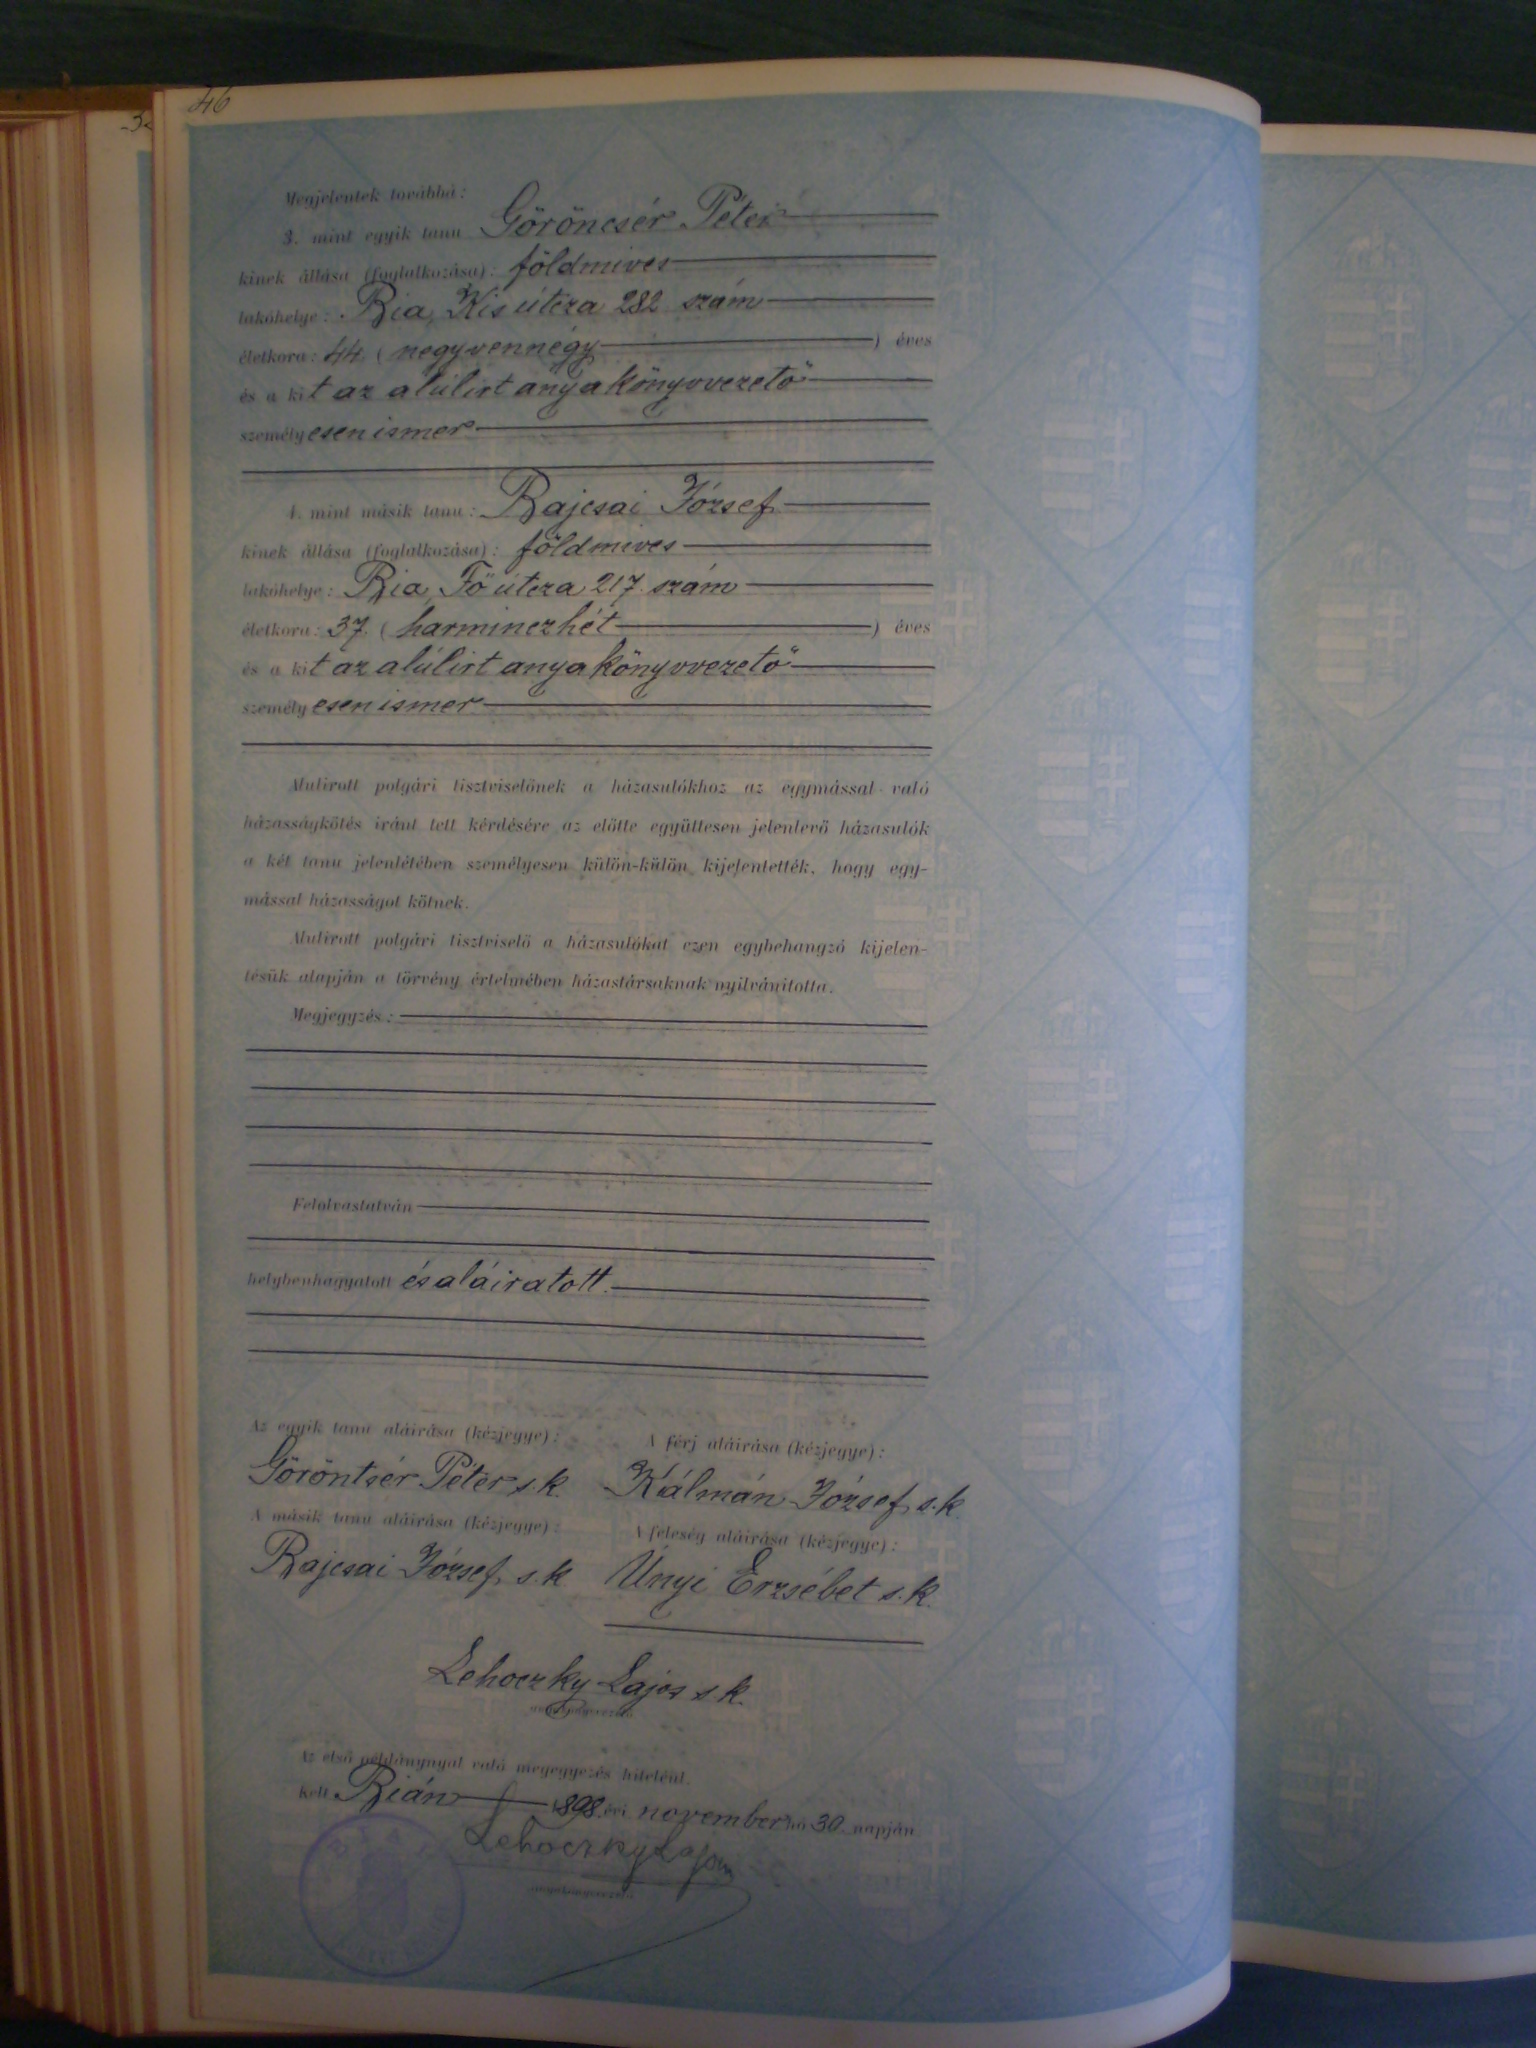 46
Megjelentek továbbá:
3. mint egyik tanu Göröncsér Péter
kinek állása (foglalkozása): földmives
lakóhelye: Bia, Kis útcza 282 szám
életkora: 44. (negyvennégy) éves
és a kit az alúlirt anyakönyvvezető
személyesen ismer
4. mint másik tanu: Rajcsai József
kinek állása (foglalkozása): földmives
lakóhelye: Bia, Fő útcza 217. szám
életkora: 37. (harminczhét) éves
és a kit az alúlirt anyakönyvvezető
személyesen ismer
Alulirott polgári tisztviselőnek a házasulókhoz az egymással való
házasságkötés iránt tett kérdésére az előtte együttesen jelenlevő házasulók
a két tanu jelenlétében személyesen külön-külön kijelentették, hogy egy-
mással házasságot kötnek.
Alulirott polgári tisztviselő a házasulókat ezen egybehangzó kijelen-
tésük alapján a törvény értelmében házastársaknak nyilvánitotta.
Megjegyzés:
Felolvastatván
helybenhagyatott és aláiratott.
Az egyik tanu aláirása (kézjegye): A férj aláirása (kézjegye):
Göröntsér Péter s.k. Kálmán József, s.k.
A másik tanu aláirása (kézjegye): A feleség aláirása (kézjegye):
Rajcsai József, s.k Únyi Erzsébet s.k.
Lehoczky Lajos s k.
anyakönyvvezető
Az első példánynyal való megegyezés hiteléül.
Kelt Bián 1898. évi november hó 30. napján
Lehoczky Lajos
anyakönyvvezető